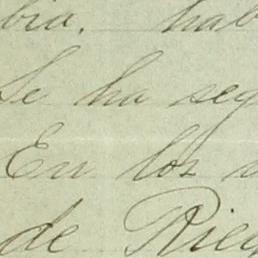 bia. hab
Se ha seg
En los
de Rieg